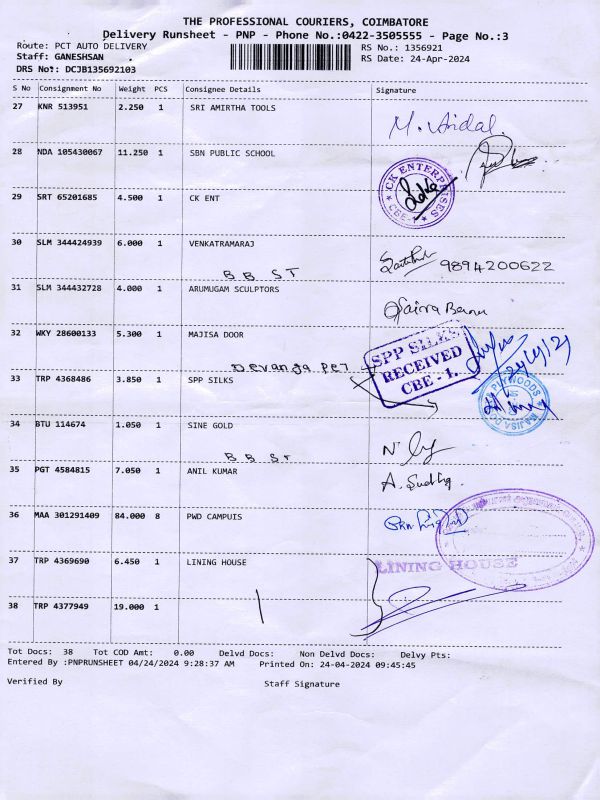 THE PROFESSIONAL COURIERS, COIMBATORE
Delivery Runsheet - PNP - Phone No.:0422-3505555 - Page No.:3
Route: PCT AUTO DELIVERY RS No.: 1356921
Staff: GANESHSAN RS Date: 24-Apr-2024
DRS No: DCJB135692103
S No Consignment No Weight PCS Consignee Details Signature
27 KNR 513951 2.250 1 SRI AMIRTHA TOOLS
28 NDA 105430067 11.250 1 SBN PUBLIC SCHOOL
29 SRT 65201685 4.500 1 CK ENT
CK ENTERPRISES
CBE
30 SLM 344424939 6.000 1 VENKATRAMARAJ
9894200622
B B ST
31 SLM 344432728 4.000 1 ARUMUGAM SCULPTORS
32 WKY 28600133 5.300 1 MAJISA DOOR
Devanga PET
SPP SILKS
RECEIVED
CBE - 1.
33 TRP 4368486 3.850 1 SPP SILKS
34 BTU 114674 1.050 1 SINE GOLD
B B ST
35 PGT 4584815 7.050 1 ANIL KUMAR
A. Sudha
36 MAA 301291409 84.000 8 PWD CAMPUIS
37 TRP 4369690 6.450 1 LINING HOUSE
LINING HOUSE
38 TRP 4377949 19.000 1
Tot Docs: 38 Tot COD Amt: 0.00 Delvd Docs: Non Delvd Docs: Delvy Pts:
Entered By :PNPRUNSHEET 04/24/2024 9:28:37 AM Printed On: 24-04-2024 09:45:45
Verified By Staff Signature